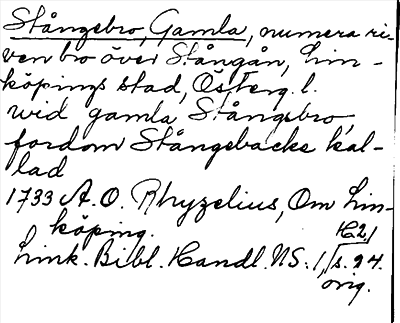 Stångebro, Gamla, numera ri-
ven bro över Stångån, Lin-
köpings stad, Österg. l.
wid gamla Stångebro,
fordom Stångebacke kal-
lad
1733 A. O. Rhyzelius, Om Lin-
köping.
H2,
Link. Bibl. Handl. NS: 1, s. 24.
orig.